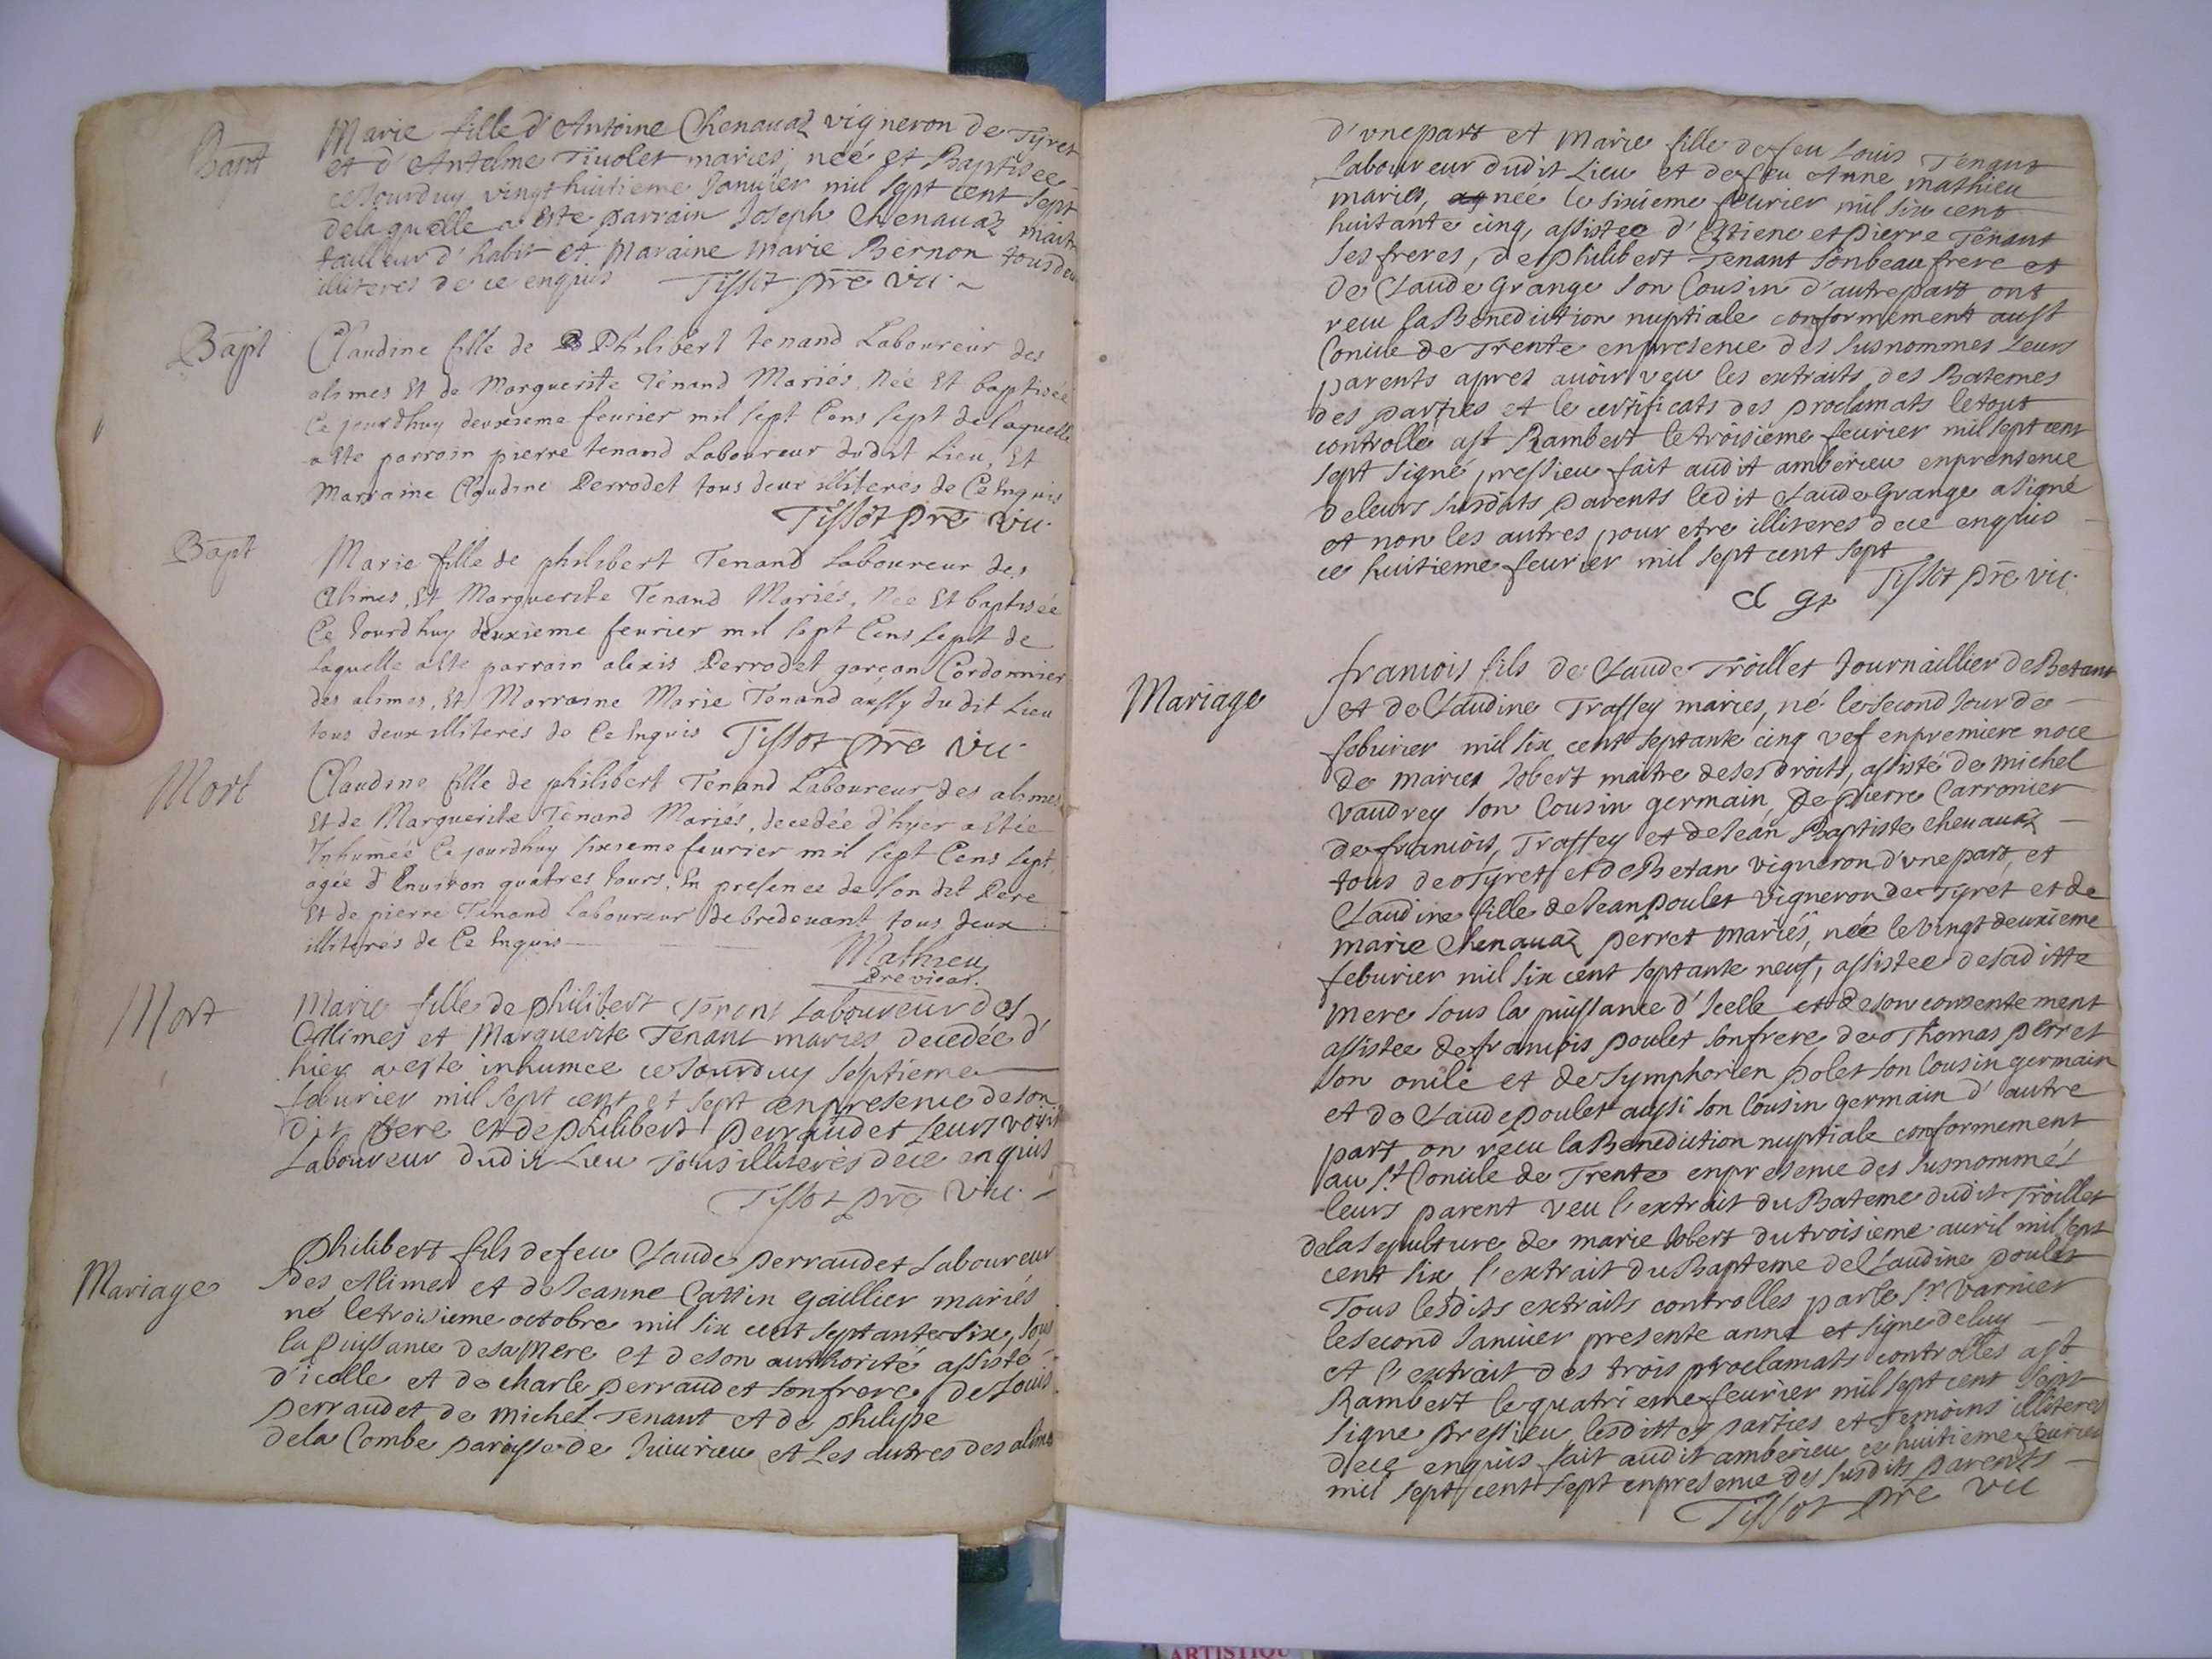 Bapt
Marie fille d'Antoine Chenauaz vigneron de Tyret
et d'Antelme Tiuolet mariés, neé et Baptisee
ceJourduy vingt huitieme Januier mil sept cent sept
delaquelle a este parrain Joseph Chenauaz maitre
tailleur d'habit et Maraine Marie Bernon tous deux
illiteres de ce enquis Tissot pre vic.
Bapt
Claudine fille de Philibert tenand Laboureur des
alimes Et de Marguerite Tenand Mariés, Née Et baptisée
Ce jourdhuy deuxieme feurier mil sept Cens sept de laquelle
a Ete parrain pierre tenand Laboureur dudit Lieu, Et
Marraine Claudine Perrodet tous deux illiterés de Ce Enquis
Tissot pre vic.
Bapt
Marie fille de philibert Tenand Laboureur des
Alimes, Et Marguerite Tenand Mariés, Née Et baptisée
Ce Jourdhuy deuxieme feurier mil sept Cens sept de
laquelle a Ete parrain alexis Perrodet garçon Cordonnier
des alimes, Et Marraine Marie Tenand aussy du dit Lieu
tous deux illiterés de Ce Enquis Tissot pre vic.
Mort
Claudine fille de philibert Tenand Laboureur des alimes
Et de Marguerite Tenand Mariés, decedée d'hyer a Etée
Inhumée Ce jourdhuy sixieme feurier mil sept Cens sept,
agée d'Enuiron quatres Jours, En presence de son dit Pere
Et de pierre Tenand Laboureur de bredeuant tous deux
illiterés de Ce Enquis
Mathieu
Pre vicai.
Mort
Marie fille de philibert Tenant Laboureur des
Allimes et Marguerite Tenant maries decedée d'
hier a este inhumee ceJourduy septieme
feburier mil sept cent et sept enpresence deson
dit pere et de philibert perraudet leurs voisin
Laboureur dudit Lieu Tous illiterés dece enquis
Tissot pre vic.
Mariage
Philibert fils defeu Claude perraudet Laboureur
des Alimes et de Jeanne Cattin gaillier mariés
né letroisieme octobre mil six cent septante six, sous
la puissance desamere et deson authorité assisté
d'icelle et de charle perraudet sonfrere, de Louis
perraudet de michel Tenant et de philippe
dela Combe paroysse de Juiurieu et les autres des alimes
d'vnepart et Marie fille defeu Louis Tenant
Laboureur dudit Lieu et defeu Anne mathieu
mariés, née le sixieme feurier mil six cent
huitante cinq, assistee d'Etiene et pierre Tenant
ses freres, de philibert Tenant sonbeaufrere et
de Claude grange son Cousin d'autrepart ont
receu la Benediction nuptiale conformement au st
Concile de Trente enpresence des susnommes leurs
parents apres auoir veu les extraits des Batemes
des parties et le certificats des proclamats letout
controllé a st Rambert letroisieme feurier mil sept cent
sept signé pressieu fait audit amberieu enprensence
deleurs susdits parents ledit Claude grange asigné
et non les autres pour etre illiteres dece enquis
ce huitieme feurier mil sept cent sept
C gr Tissot pre vic.
Mariage
francois fils de Claude Troillet Journaillier deBetant
et de Claudine Trassey maries, né lesecond Jour de
feburier mil six cent septante cinq vef enpremiere noce
de maries Jobert maitre deses droits, assisté de michel
vaudrey son Cousin germain de pierre Carronier
de francois Trassey et deJean Baptiste chenauaz
tous de Tyret et de Betan vigneron d'vne part, et
Claudine fille deJean poulet vigneron de Tyret et de
marie Chenauaz perret mariés, née levingt deuxieme
feburier mil six cent septante neuf, assistee desaditte
mere sous la puissance d'Icelle et deson consentement
assistee de francois poulet sonfrere, de Thomas perret
son oncle et de Symphorien polet son Cousin germain
et de Claude poulet aussi son Cousin germain d'autre
part on receu laBenediction nuptiale conformement
au st Concile de Trente enpresence des susnommés
leurs parent veu l'extrait du Bateme dudit Troillet
dela Sepulture de marie Jobert du troisieme auril mil sept
cent six l'extrait du Bapteme de Claudine poulet
Tous lesdits extraits controlles parle sr varnier
lesecond Januier presente anné et signe deluy
et l'extrait des trois proclamats controlles a st
Rambert lequatrieme feurier mil sept cent sept
signe pressieu, lesdittes parties et temoins illiteres
dece enquis fait audit amberieu ce huitieme feurier
mil sept cent sept enpresence des susdits parents
Tissot pre vic
ARTISTIQU